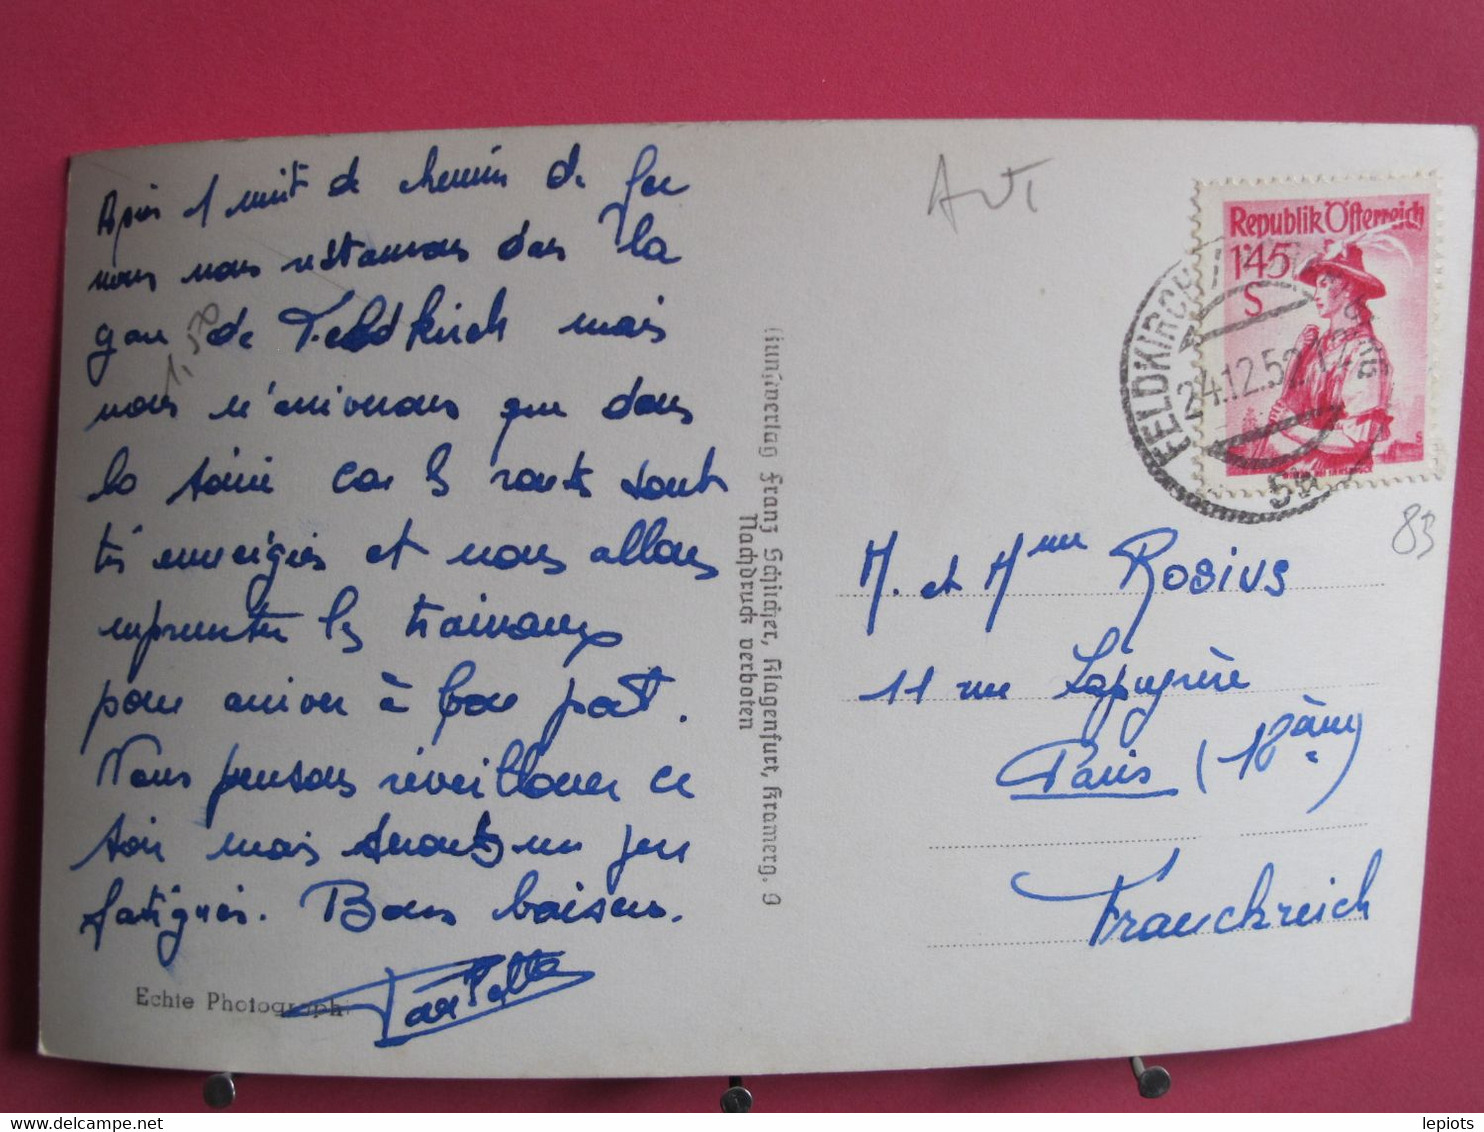 Après 1 nuit de chemin de fer
nous nous restaurons dans la
gare de Feldkirch mais
nous n'arriverons que dans
la soirée car les routes sont
très enneigées et nous allons
emprunter les traineaux
pour arriver à bon port.
Nous pensons réveillonner ce
soir mais serons un peu
fatigués. Bons baisers.
Echte Photograph.
1,50
Kunstverlag Franz Schilcher, Klagenfurt, Kramerg. 9
Nachdruck verboten
Aut
Republik Österreich
1'45
S
FELDKIRCH
24.12.52.17
5a
83
M. et Mme ROSIUS
11 rue Lapeyrère
Paris (18ème)
Franckreich
delcampe.net
lepiots